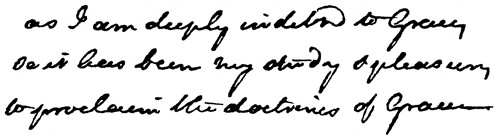 as I am deeply indebted to Grace,
so it has been my study & pleasure,
to proclaim the doctrines of Grace